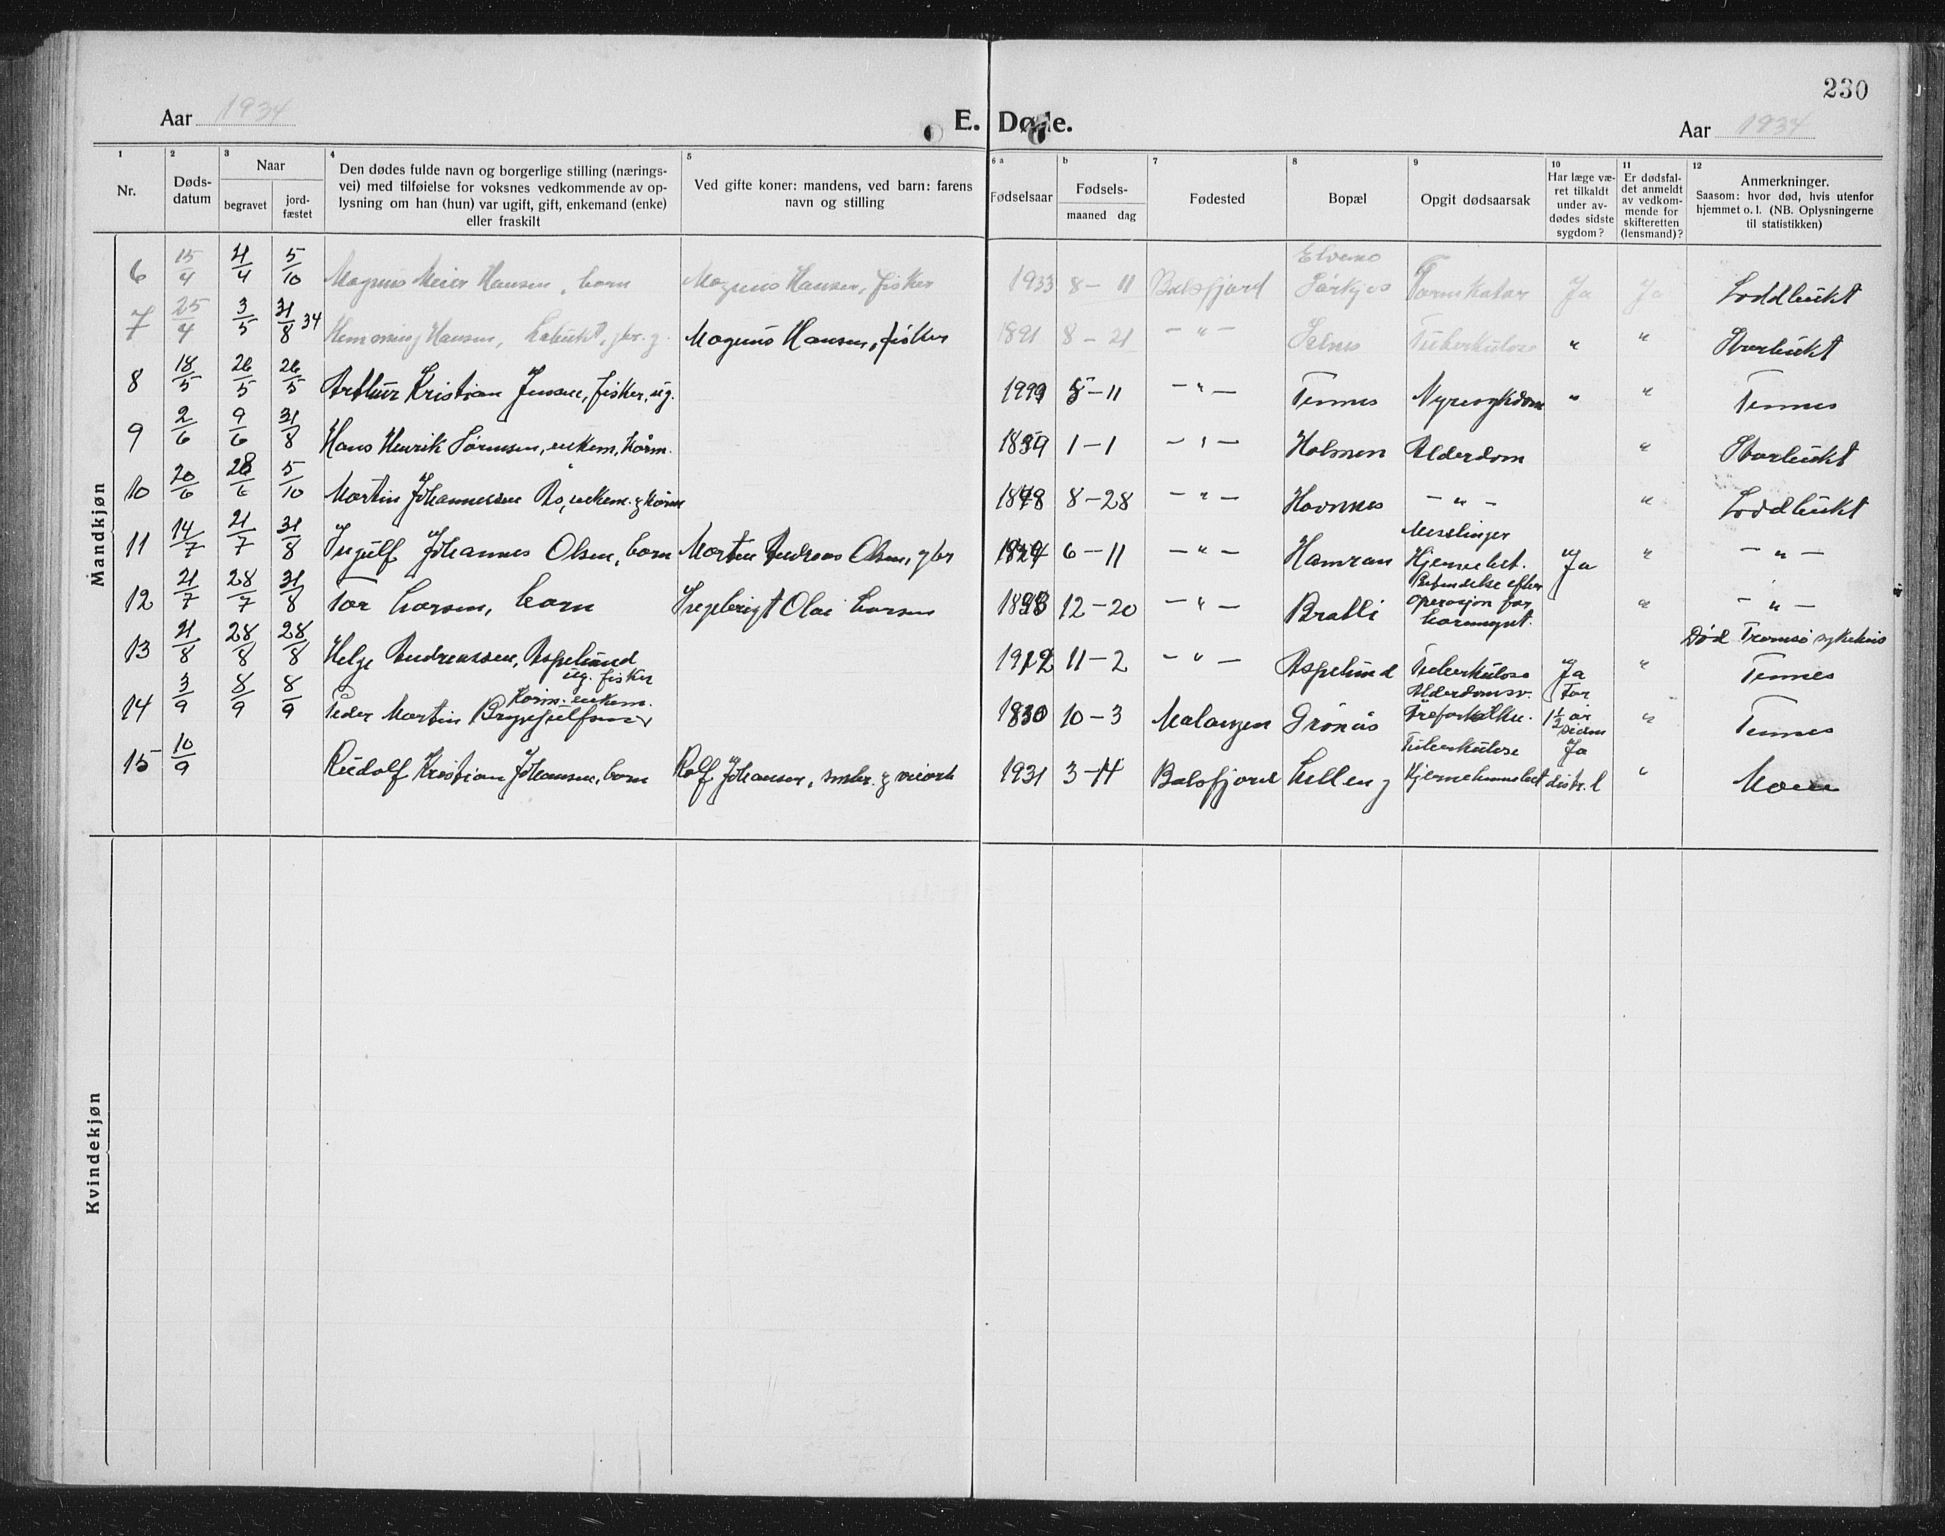 230
Aar 1934
E. Døde.
Aar 1934
1 2 3 4 5 6 a b 7 8 9 10 11 12
Nr.
Døds-
datum
Naar
begravet
jord-
fæstet
Den dødes fulde navn og borgerlige stilling (nærings-
vei) med tilføielse for voksnes vedkommende av op-
lysning om han (hun) var ugift, gift, enkemand (enke)
eller fraskilt
Ved gifte koner: mandens, ved barn: farens
navn og stilling
Fødselsaar
Fødsels-
maaned dag
Fødested
Bopæl
Opgit dødsaarsak
Har læge væ-
ret tilkaldt
under av-
dødes sidste
sygdom?
Er dødsfal-
det anmeldt
av vedkom-
mende for
skifteretten
(lensmand)?
Anmerkninger.
Saasom: hvor død, hvis utenfor
hjemmet o. l. (NB. Oplysningerne
til statistikken)
Mandkjøn
6 15/4 21/4 5/10 Magnus Meier Hansen, barn Magnus Hansen, fisker 1933 8 - 11 Balsfjord Elvemo Sørkjos Tarmkatar Ja Ja Loddbukt
7 25/4 3/5 31/8 34 Hemming Hansen, gbr. Magnus Hansen, fisker 1891 8 - 21 - " - Selnes Tuberkulose " " Storbukt
8 18/5 26/5 26/5 Arthur Kristian Jensen, fisker, ug. 5 - 11 - " - Tennes Nyresykdom " " Tennes
9 2/6 9/6 31/8 Hans Henrik Sørensen, enkem, kårm. 1 - 1 - " - Holmen Alderdom " Storbukt
10 20/6 28/6 5/10 Martin Johannessen enkem. g kårm 8 - 28 - " - Havnnes - " - " Loddbukt
11 14/7 21/7 31/8 Ingulf Johannes Olsen, barn Morten Andreas Olsen, gbr 6 - 11 - " - Hamran Meslinger Hjernebet. Ja " - " -
12 21/7 28/7 31/8 Tor Larsen, barn Ingebrigt Olai Larsen 12 - 20 - " - Bratli Betendelse efter operasjon for " - " -
13 21/8 28/8 28/8 Helge Andreassen, Aspelund ug. fisker 1912 11 - 2 - " - Aspelund Tuberkulose Ja " Død Tromsø sykehus Tennes
14 3/9 8/9 8/9 Peder Martin Brynjulfsen Kårm. enkem. 1830 10 - 3 Malangen Grønås Alderdomsv. Åreforkalkn. For 1½ år siden " Tennes
15 10/9 Rudolf Kristian Johansen, barn Rolf Johansen, småbr. g 1931 3 - 14 Balsfjord Lilleng Tuberkuløse Hjernehinnebet Ja distr. l " Moen
Kvindekjøn